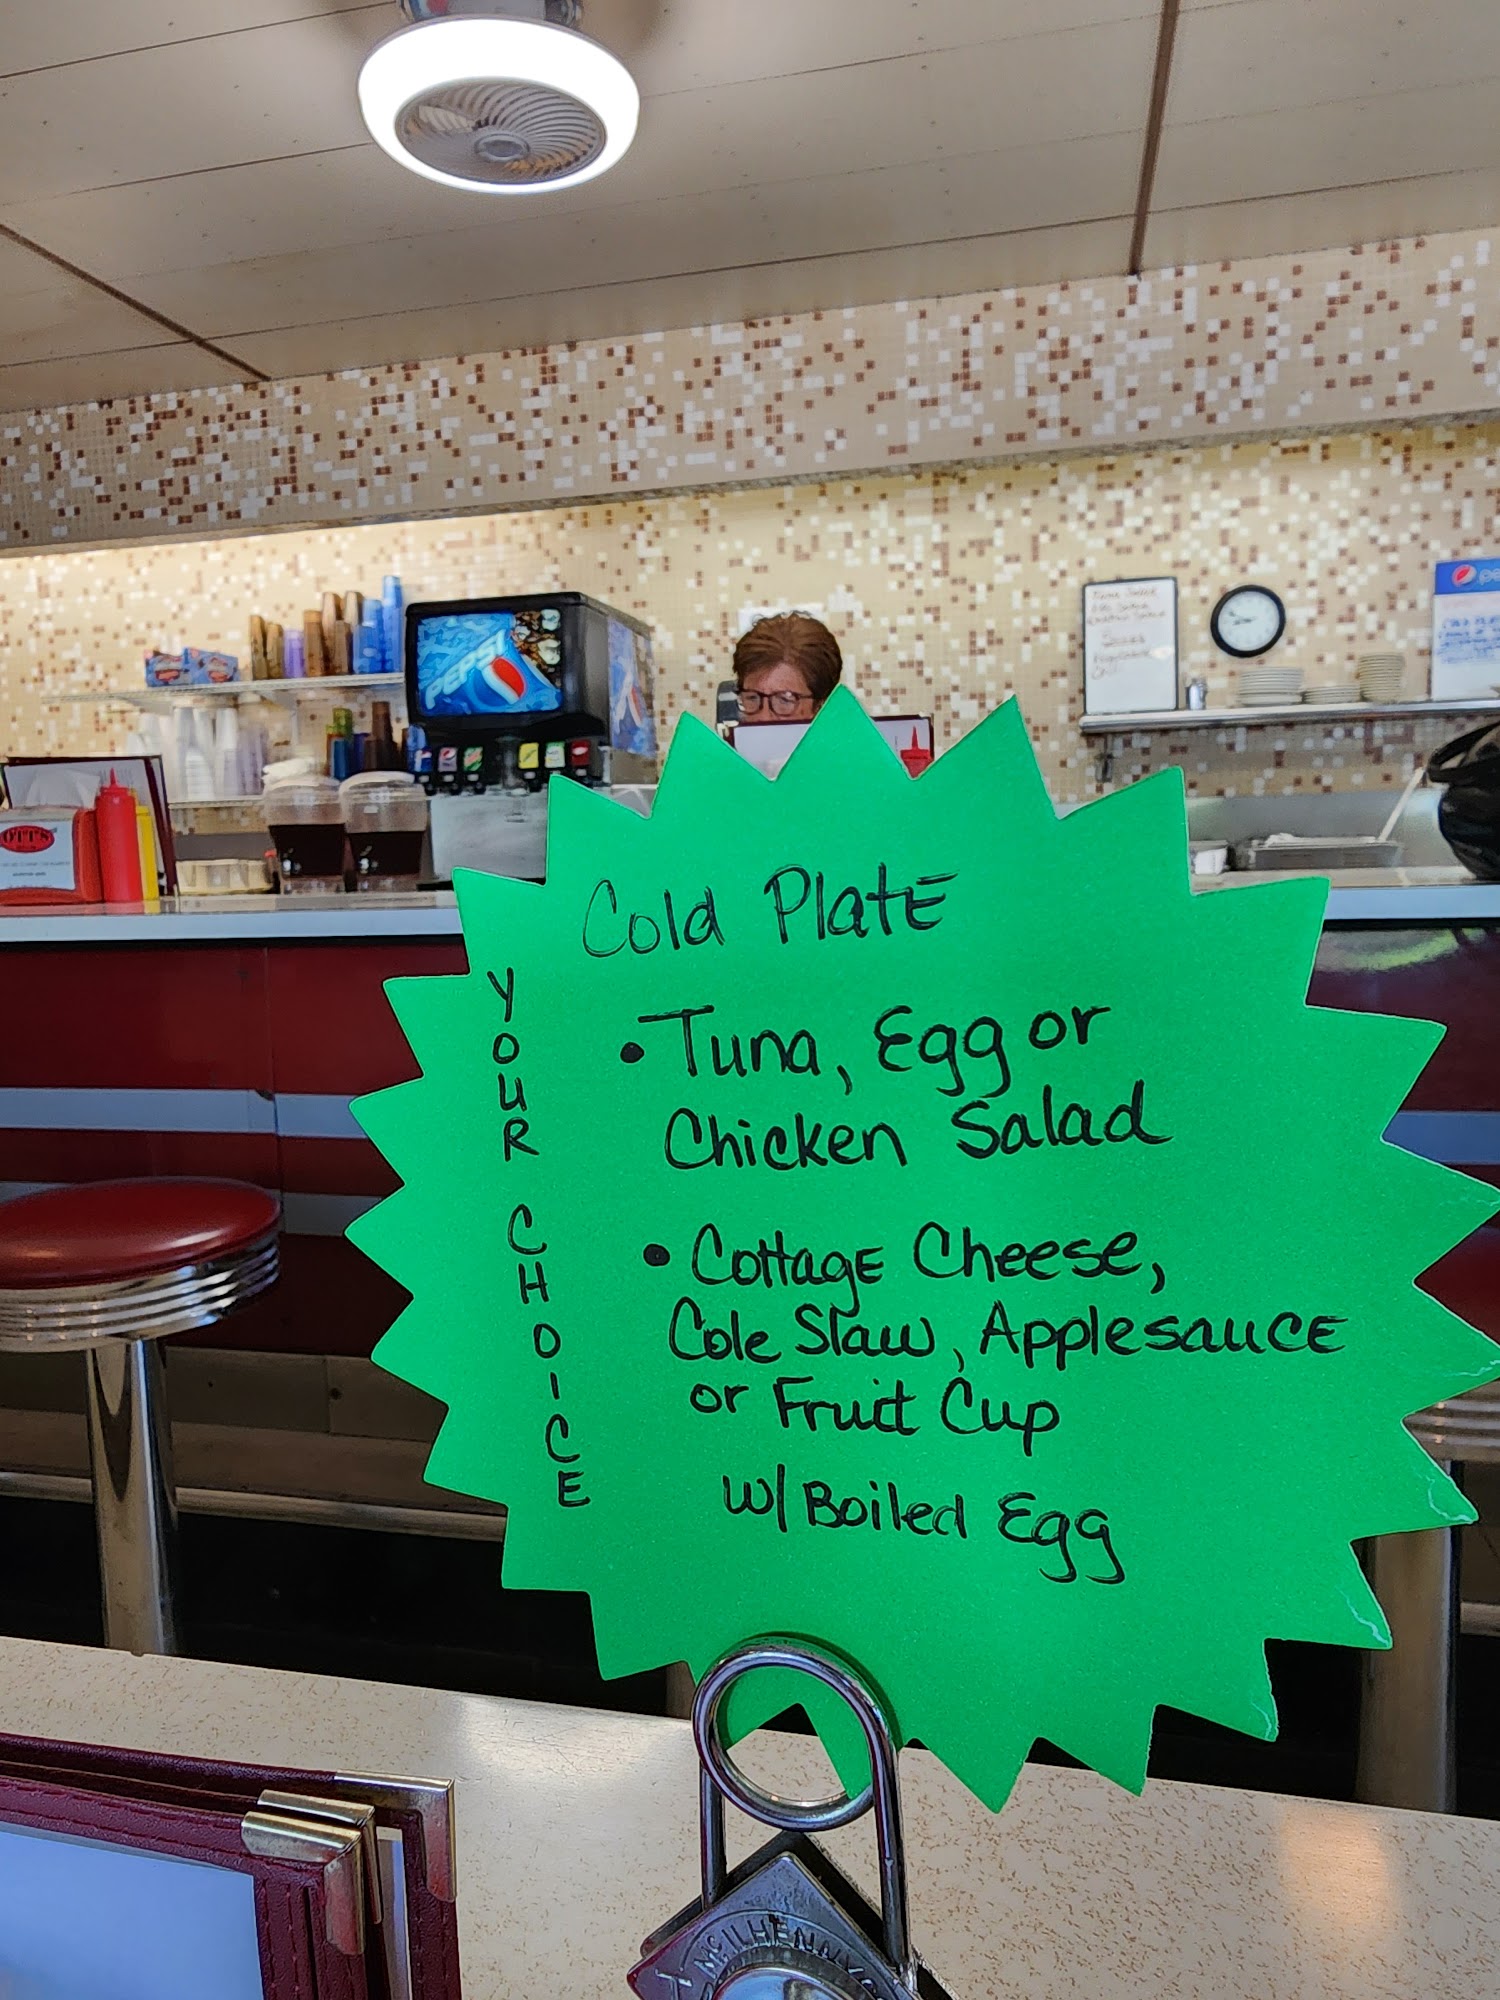 PEPSI
pe
OTT'S
Cold Plate
YOUR CHOICE
• Tuna, Egg or
Chicken Salad
• Cottage Cheese,
Cole Slaw, Applesauce
or Fruit Cup
w/ Boiled Egg
McILHENNY